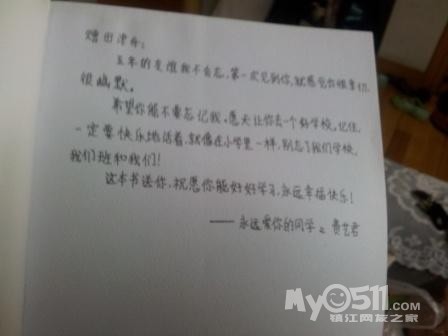 赠田津舟：
五年的友谊我不会忘，第一次见到你，就感觉你很亲切，
很幽默。
希望你能不要忘记我。愿天让你去一个好学校。记住，
一定要快乐地活着，就像在小学里一样，别忘了我们学校，
我们班和我们！
这本书送你，祝愿你能好好学习，永远幸福快乐！
——永远爱你的同学：费艺君
My0511.com
镇江网友之家